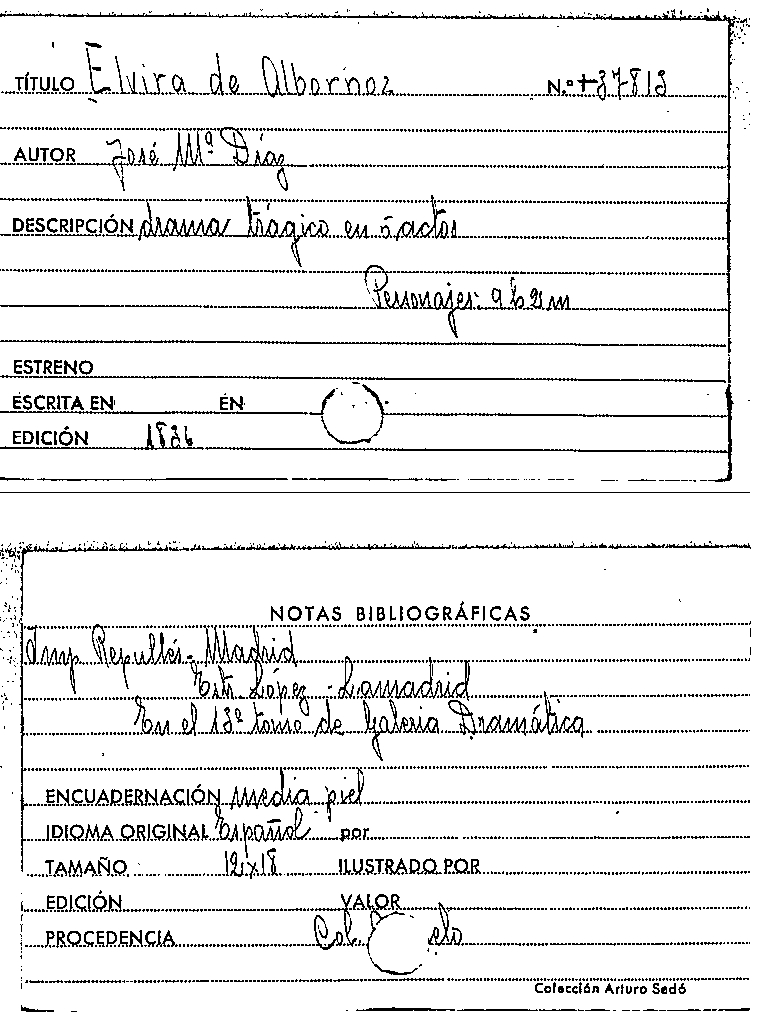 TÍTULO Elvira de Albornoz N.º
AUTOR José Mª Díaz
DESCRIPCIÓN drama trágico en 5 actos
Personajes: 9 h 2 m
ESTRENO
ESCRITA EN EN
EDICIÓN 1836
NOTAS BIBLIOGRÁFICAS
Imp Repullés - Madrid
Estr López - Lamadrid
En el 13º tomo de Galeria Dramática
ENCUADERNACIÓN media piel
IDIOMA ORIGINAL Español por
TAMAÑO 12x18 ILUSTRADO POR
EDICIÓN VALOR
PROCEDENCIA Col.
Colección Arturo Sedó